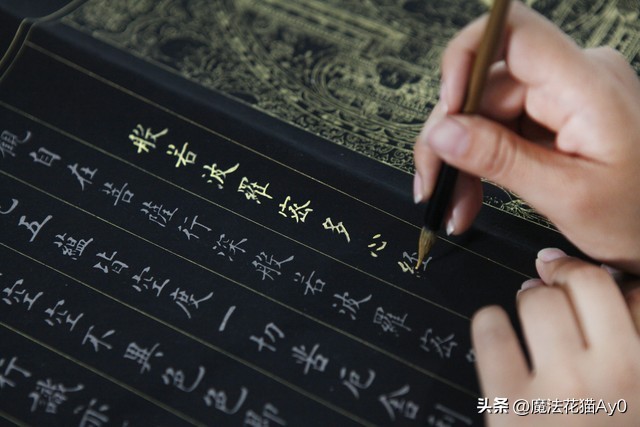 般若波羅蜜多心經
觀自在菩薩行深般若波羅蜜
見五蘊皆空度一切苦厄舍利
空空不異色色即
行識亦
头条 @魔法花猫Ay0